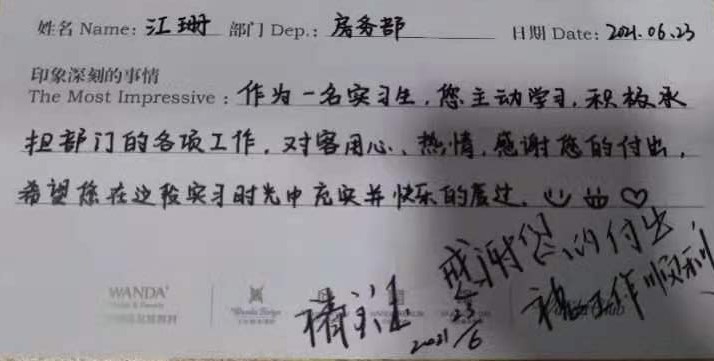 姓名 Name: 江珊 部门 Dep.: 房务部 日期 Date: 2021.06.23
印象深刻的事情
The Most Impressive : 作为一名实习生,您主动学习,积极承
担部门的各项工作,对客用心、热情,感谢您的付出,
希望您在这段实习时光中充实并快乐的度过。
感谢您的付出
祝工作顺利
2021 23/6
WANDA